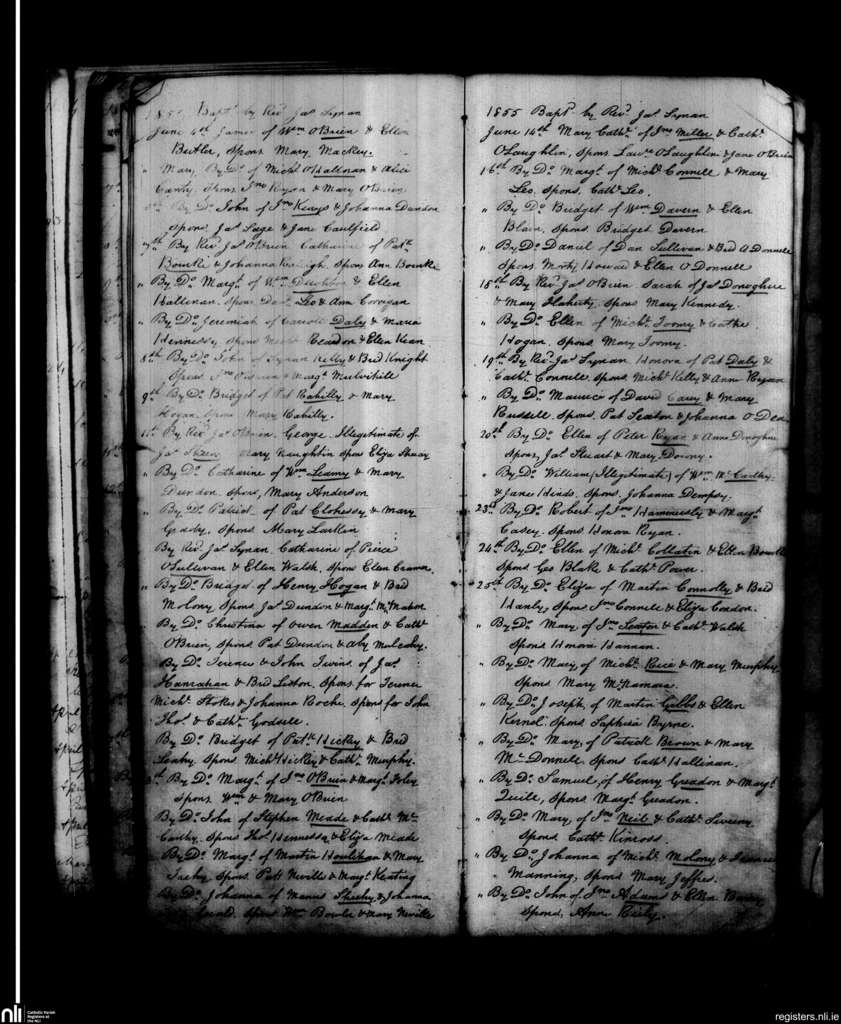 185 Bapt by Revd Jas Synan
June 4th James of Wm O'Brien & Ellen
Butler, Spons Mary Mackey.
" Mary, By Do of Michl O'Halloran & Alice
Spons Jno Ryan & Mary O'Brien
By Do John of Jno Keays & Johanna Dundon
Spons Jas Sage & Jane Caulfield
7th By Revd Jas O'Brien Catharine of Patk
Bourke & Johanna Spons Ann Bourke
" By Do Margt of Wm & Ellen
Hallinan. Spons Danl Leo & Ann Corrigan
" By Do Jeremiah of Daly & Maria
Hennessy, Spons Reardon & Ellen Kean
8th By Do John of Synan Kelly & Brd Knight
Spons Jno O'Brien & Margt Mulvihill
9th By Do Bridget of Pat Rahilly & Mary
Hogan Spons Mary Rahilly.
11th By Revd Jas O'Brien. George. Illegitimate of
Jas Mary Naughtin Spons Eliza
" By Do Catharine of Wm Leamy & Mary
Dundon. Spons, Mary Anderson
" By Do Patrick of Pat Clohessy & Mary
Grady, Spons Mary Larkin
By Revd Jas Synan Catharine of Pierce
O'Sullivan & Ellen Walsh. Spons Ellen
" By Do Bridgt of Henry Hogan & Brd
Molony Spons Jas Dundon & Margt McMahon
By Do Christina of Owen Madden & Cathe
O'Brien, Spons Pat Dundon & Mulcahy.
By Do Terence & John Twins of Jas
Hanrahan & Brd Liston. Spons for Terence
Michl Stokes & Johanna Roche. Spons for John
Thos & Cathe Godsell.
By Do Bridget of Patk Hickey & Brd
Leahy Spons Michl Hickey & Cathe Murphy.
By Do Margt of Jno O'Brien & Margt Foley
Spons Wm & Mary O'Brien
By Do John of Stephen Meade & Cathe Mc
Carthy. Spons Thos Hennessy & Eliza Meade
By Do Margt of Martin Houlihan & Mary
Spons Patt Neville & Margt Keating
By Do Johanna of Manus Sheehy & Johanna
Spons Wm Bowler & Mary Neville
1855 Bapt by Revd Jas Synan
June 14th Mary Cathe of Jno Miller & Cathe
O'Loughlin, Spons Lawce O'Loughlin & Jane O'Brien
16th By Do Margt of Michl Connell & Mary
Leo. Spons, Cathe Leo.
" By Do Bridget of Wm Davern & Ellen
Blair, Spons Bridget Davern
" By Do Daniel of Dan Sullivan & Brd O'Donnell
Spons. Morty Howard & Ellen O'Donnell
18th By Revd Jas O'Brien Sarah of Jas Donoghue
& Mary Flaherty. Spons Mary Kennedy.
" By Do Ellen of Michl Toomy & Cathe
Hogan. Spons Mary Toomy.
19th By Revd Jas Synan Honora of Pat Daly &
Cathe Connell. Spons, Michl Kelly & Anne Ryan
" By Do Maurice of David Carey & Mary
Russell. Spons, Pat Sexton & Johanna O'Dea
20th By Do Ellen of Peter Ryan & Anne Donoghue
Spons, Jas Stuart & Mary Downy.
" By Do William (Illegitimate) of Wm McCarthy
& Jane Hinds. Spons. Johanna Dempsy.
23rd By Do Robert of Jno Hammersly & Margt
Casey. Spons Honora Ryan.
24th By Do Ellen of Michl Collatin & Ellen Bourke
Spons Geo Blake & Cathe Power.
25th By Do Eliza of Martin Connolly & Brd
Hanly, Spons Jno Connell & Eliza Condon.
" By Do Mary, of Jno Sexton & Cathe Walsh
Spons Honora Hannan.
" By Do Mary, of Michl Rice & Mary Murphy
Spons Mary McNamara.
" By Do Joseph, of Martin Gubbs & Ellen
Kernel. Spons Sophia Byrne.
" By Do Mary, of Patrick Brown & Mary
McDonnell Spons Cathe Hallinan.
" By Do Samuel, of Henry Greadon & Margt
Quile, Spons Margt Greadon.
" By Do Mary, of Jno Neil & Cathe
Spons Cathe Kinross.
" By Do Johanna of Michl Molony &
" Manning, Spons Mary Jaffres.
" By Do John of Jno Adams & Ellen
Spons, Anne Reily.
April
April
April
nli
Catholic Parish
Registers at
the NLI
registers.nli.ie